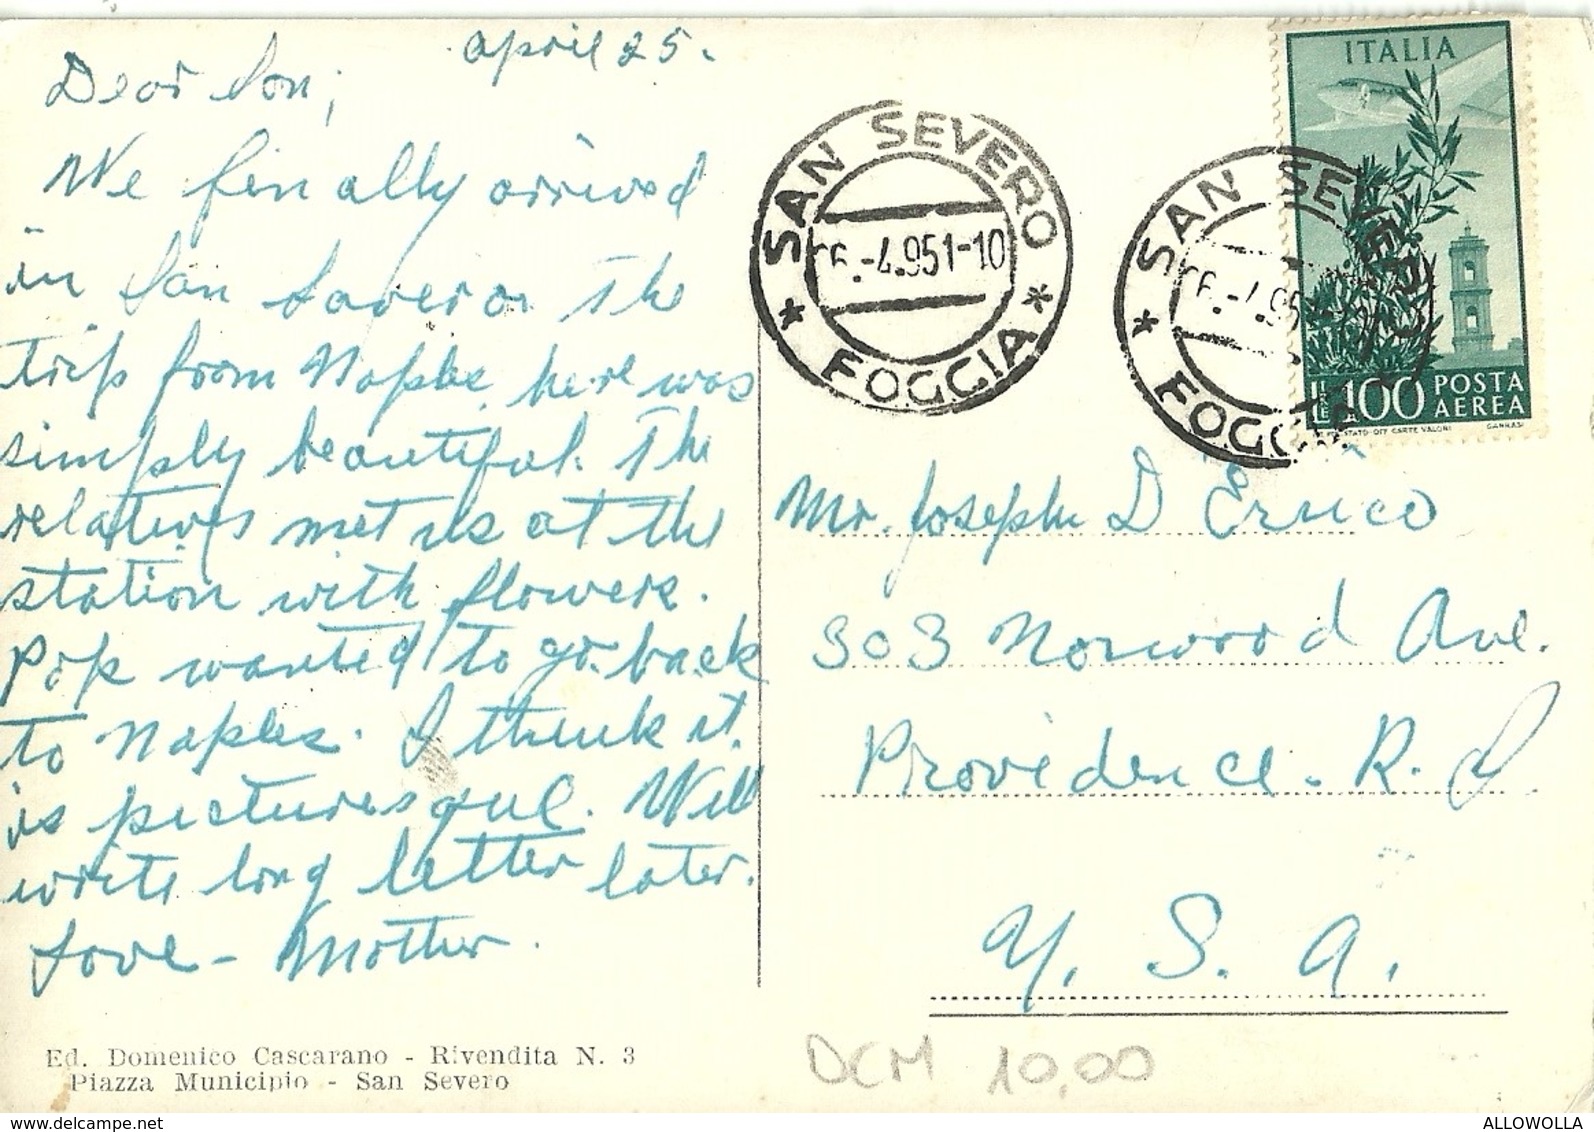 April 25.
Dear Son,
We finally arrived
in San Severo. The
trip from Naples here was
simply beautiful. The
relatives met us at the
station with flowers.
Pop wanted to go back
to Naples. I think it
is picturesque. Will
write long letter later.
Love - Mother.
Ed. Domenico Cascarano - Rivendita N. 3
Piazza Municipio - San Severo
SAN SEVERO
6.-4.951-10
* FOGGIA *
SAN SEVERO
6.-4.95
* FOGGIA
ITALIA
LIRE 100 POSTA
AEREA
Mr. Joseph D'Errico
303 Norwood Ave.
Providence. R. I.
U. S. A.
DCM 10,00
ALLOWOLLA